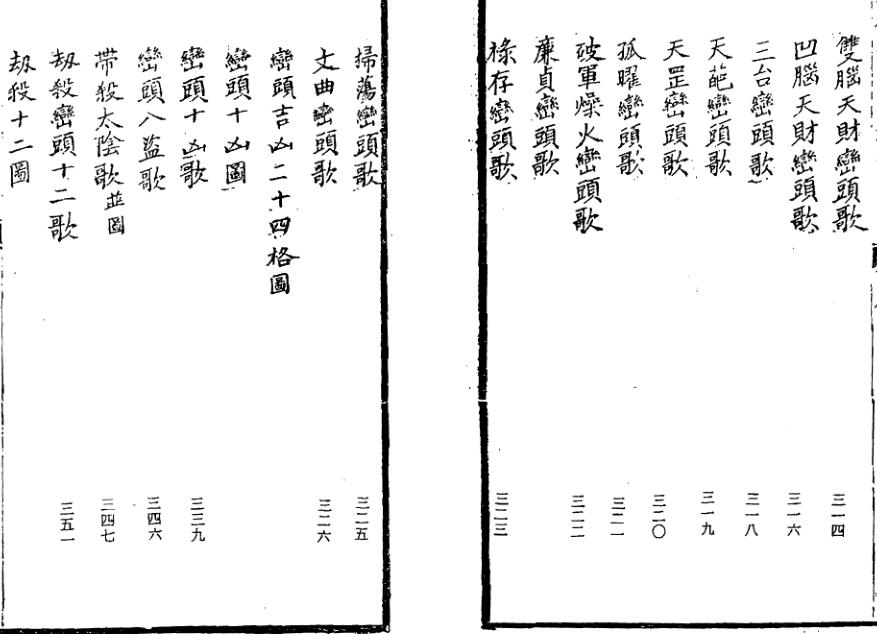 雙腦天財巒頭歌 三一四
凹腦天財巒頭歌 三一六
三台巒頭歌 三一八
天葩巒頭歌 三一九
天罡巒頭歌 三二〇
孤曜巒頭歌 三二一
破軍燥火巒頭歌 三二二
廉貞巒頭歌
祿存巒頭歌 三二三
掃蕩巒頭歌 三二五
文曲巒頭歌 三二六
巒頭吉凶二十四格圖
巒頭十凶圖
巒頭十凶歌 三三九
巒頭八盜歌 三四六
帶殺太陰歌並圖 三四七
刼殺巒頭十二歌 三五一
刼殺十二圖